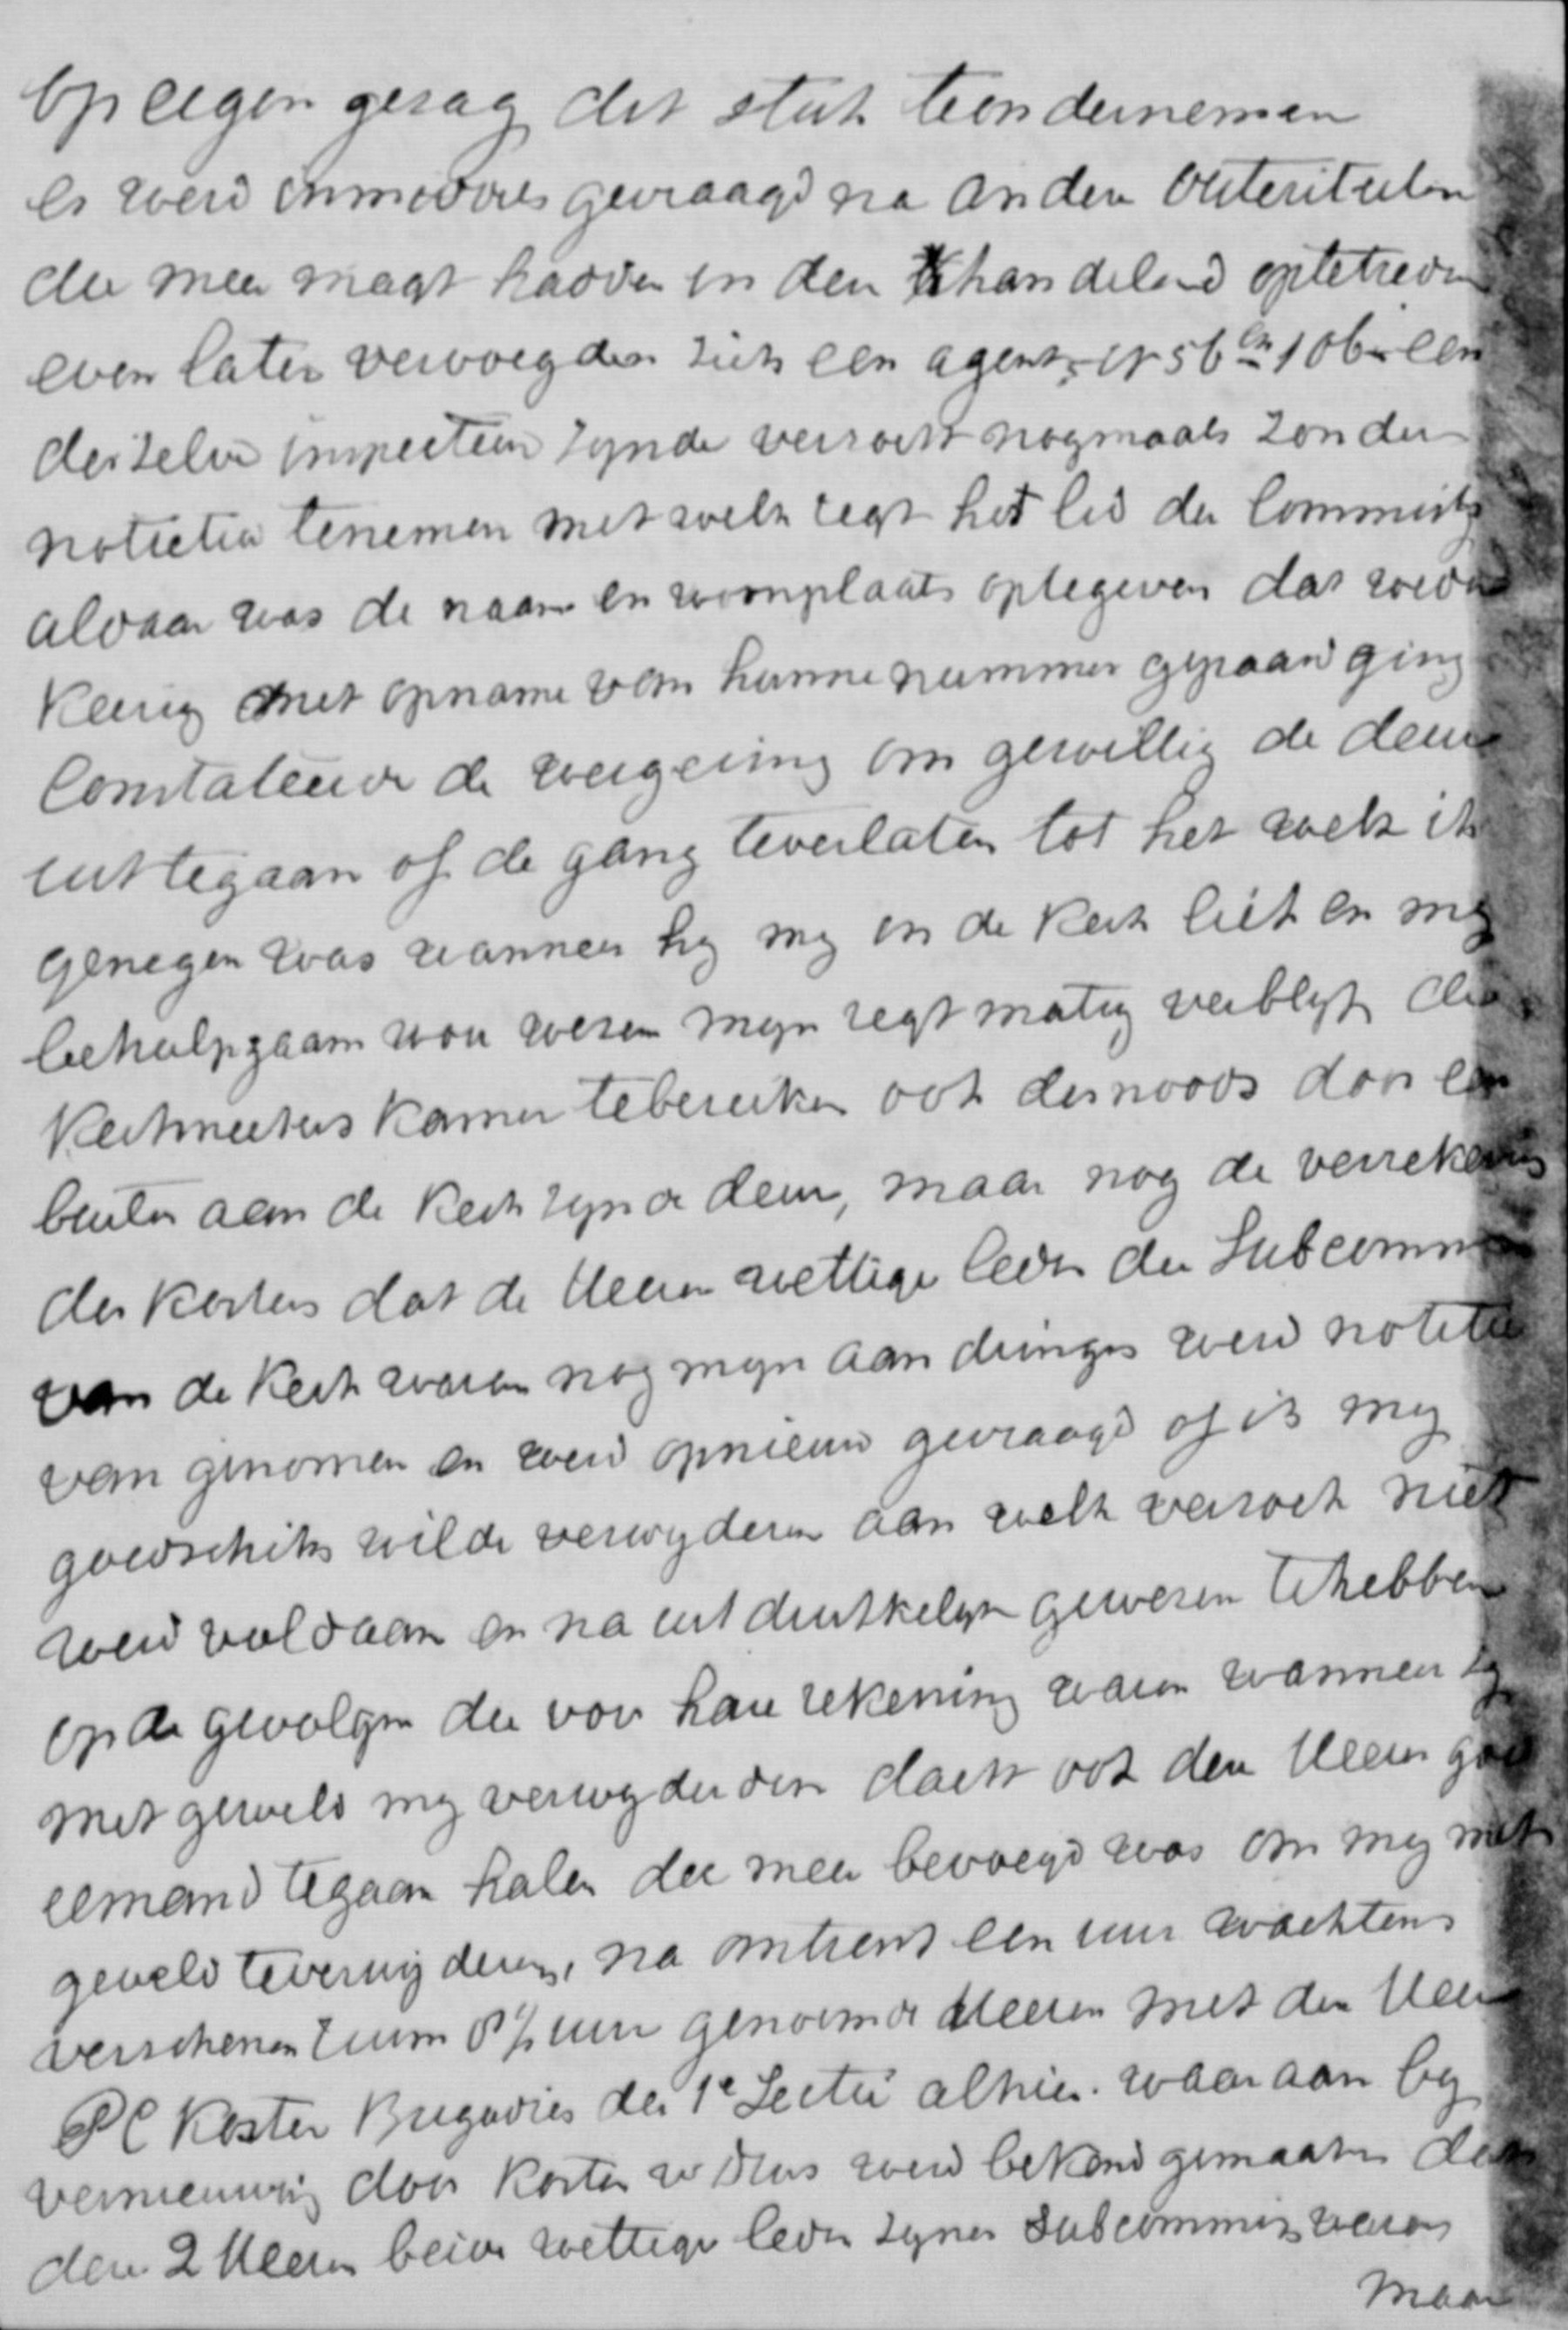 op eigen gezag dit stuk teondernemen
er werd inmiddels gevraagd na andere outeriteiten
die meer magt hadden en den handelend optetreden
even later vervoegden zich een agent, N 56 en 106 een
derzelve inspecteur zynde verzocht nogmaals zonder
notietie tenemen met welk regt het lid der Commissi
aldaar was de naam en woonplaats optegeven dat weder
kerig met opname van hunne nummer gepaard ging
Constateerde de weigering om gewillig de deur
uittegaan of de gang teverlaten tot het welk ik
genegen was wanneer hy my in de Kerk liet en my
behulpzaam wou wezen myn regt matig verblyf die
Kerkmeesters kamer tebereiken ook desnoods door een
buiten aan de Kerk zynde deur, maar nog de verzekering
der kosters dat de Heeren wettige leden der Subcomm
van de Kerk waren nog myn aan dringen werd notitie
van genomen en werd opnieuw gevraagd of ik my
goedschiks wilde verwyderen aan welk verzoek niet
werd voldaan en na uit drukkelyk gewezen tehebben
op de gevolgen die voor hare rekening waren wanneer zy
met geweld my verwyderden dacht ook den Heeren goed
iemand tegaan halen die meer bevoegd was om my met
geweld teverwyderen, na omtrent een uur wachtens
verschenen ruim 8½ uur genoemde Heeren met den Heer
P C Koster Brigadier der 1e Sectie alhier. waar aan by
vernieuwing door Koster werd bekend gemaakt dat
den 2 Heeren beide wettige leden zyner Subcommis waren
maar